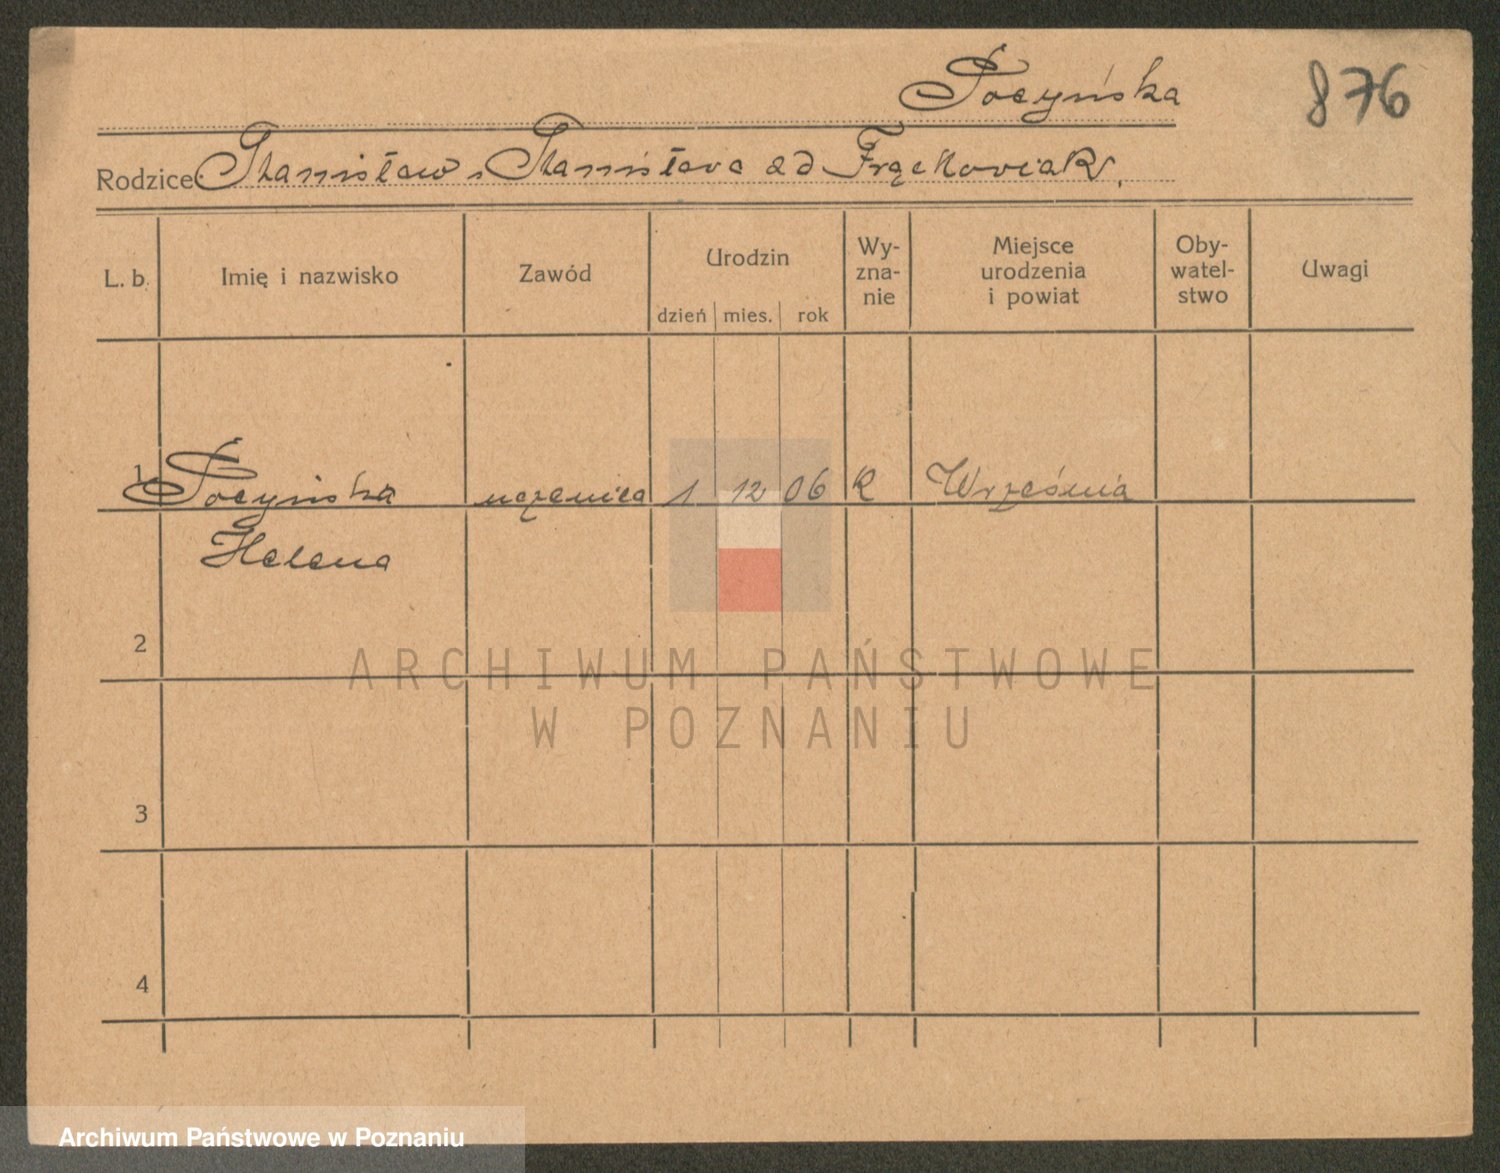 Tocyńska
876
Rodzice Stanisław i Stanisława od Frąckowiak.
L. b.
Imię i nazwisko
Zawód
Urodzin
dzień mies. rok
Wy-
zna-
nie
Miejsce
urodzenia
i powiat
Oby-
watel-
stwo
Uwagi
1 Tocyńska uczenica 1 12 06 R Września
Helena
2
3
4
ARCHIWUM PAŃSTWOWE
W POZNANIU
Archiwum Państwowe w Poznaniu